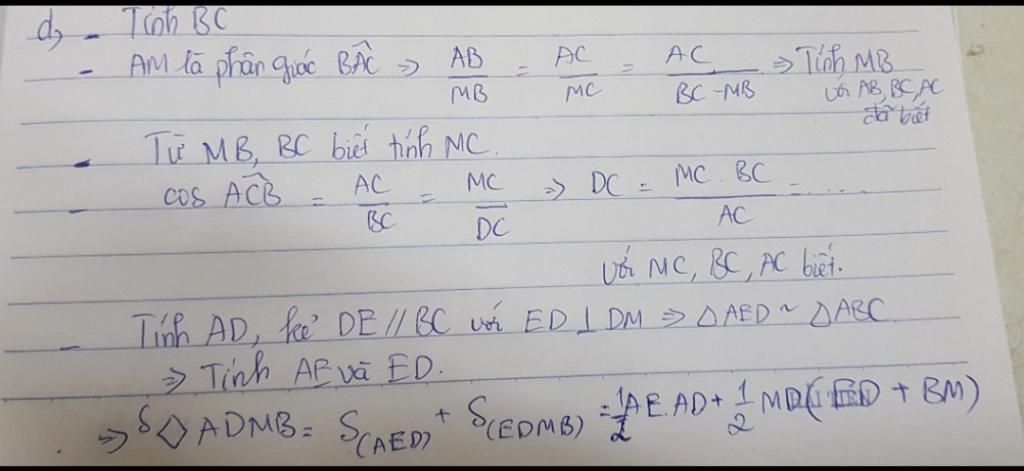 d, - Tính BC
- AM là phân giác BÂC => AB/MB = AC/MC = AC/(BC - MB) => Tính MB
với AB, BC, AC
đã biết
- Từ MB, BC biết tính MC.
- cos AĈB = AC/BC = MC/DC => DC = MC . BC/AC = ....
với MC, BC, AC biết.
- Tính AD, kẻ DE // BC với ED ⊥ DM => △AED ~ △ABC
=> Tính AE và ED.
=> S◇ADMB = S(AED) + S(EDMB) = 1/2 AE.AD + 1/2 MD(ED + BM)